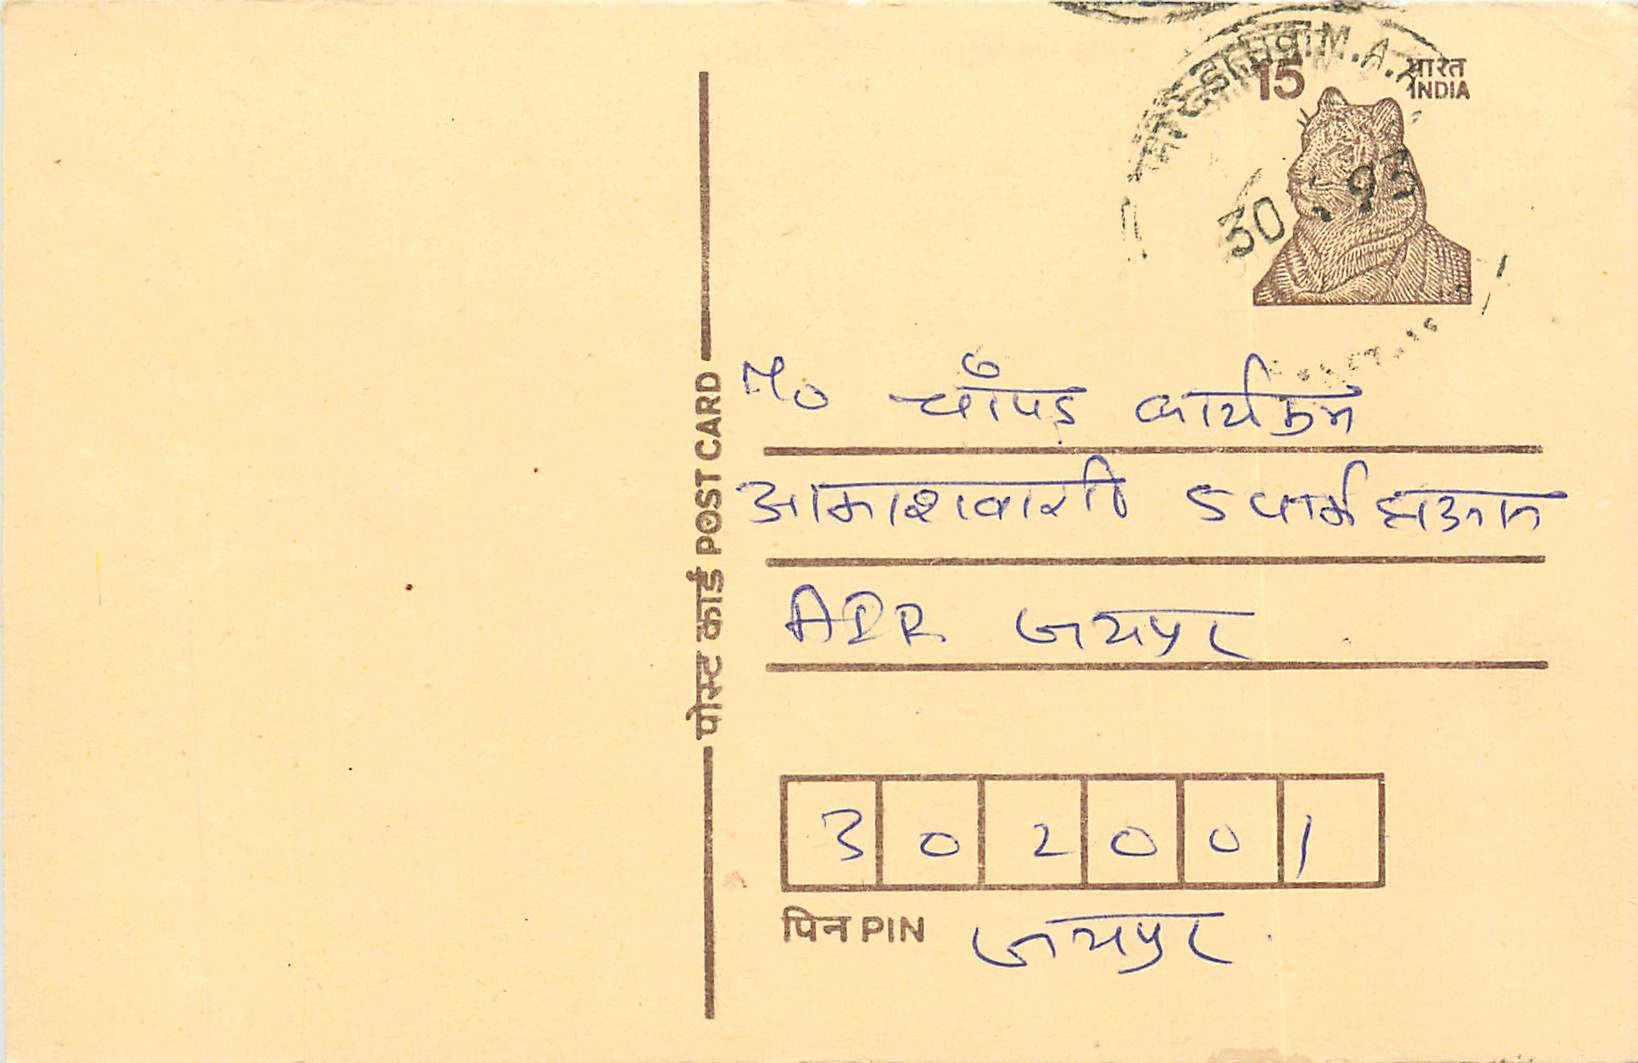 15 भारत
INDIA
M.A.
30 . 93
पोस्ट कार्ड POST CARD
चौपड़ कार्यक्रम
आकाशवाणी 5 पार्क हाऊस
AIR जयपुर
302001
पिन PIN जयपुर